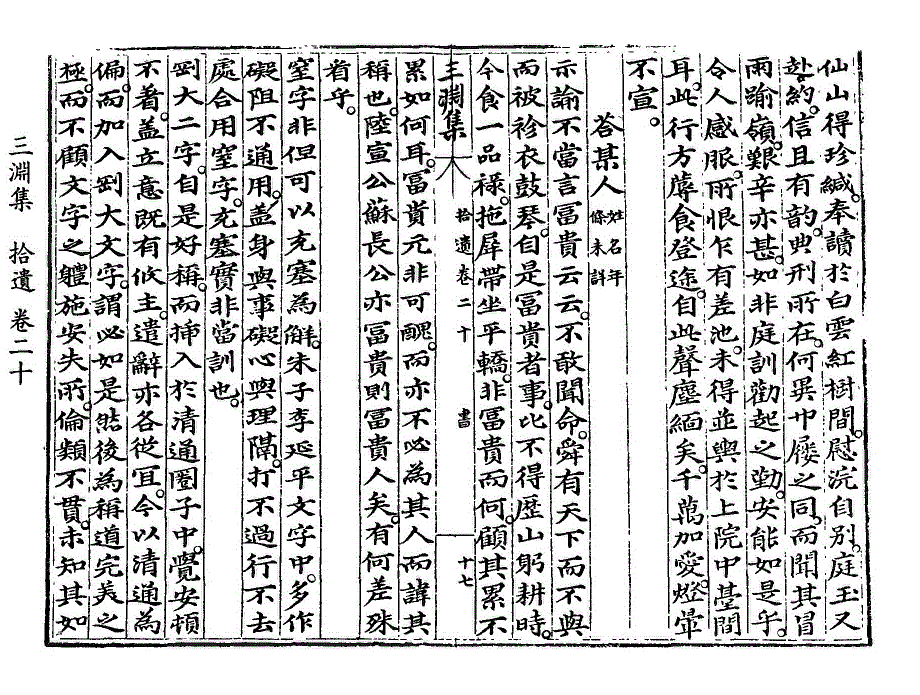 仙山得珍緘。奉讀於白雲紅樹間。慰浣自別。庭玉又
赴約。信且有韵。典刑所在。何異巾屨之同。而聞其冒
雨踰嶺。艱辛亦甚。如非庭訓勸起之勤。安能如是乎。
令人感服。所恨乍有差池。未得並輿於上院中臺間
耳。此行方蓐食登途。自此聲塵緬矣。千萬加愛。燈暈
不宣。
答某人 姓名年條未詳
示諭不當言冨貴云云。不敢聞命。舜有天下而不與
而被袗衣鼓琴。自是冨貴者事。比不得歷山躬耕時。
今食一品祿。拖犀帶坐平轎。非冨貴而何。顧其累不
三淵集 拾遺卷二十 書 十七
累如何耳。冨貴元非可醜。而亦不必為其人而諱其
稱也。陸宣公蘇長公亦冨貴則冨貴人矣。有何差殊
看乎。
窒字非但可以充塞為觧。朱子李延平文字中。多作
礙阻不通用。盖身與事礙。心與理隔。打不過行不去
處。合用窒字。充塞實非當訓也。
剛大二字。自是好稱。而揷入於清通圈子中。覺安頓
不着。盖立意既有攸主。遣辭亦各從宜。今以清通為
偏。而加入剛大文字。謂必如是然後為稱道完美之
極。而不顧文字之軆施安失所。倫類不貫。未知其如
三淵集 拾遺 卷二十